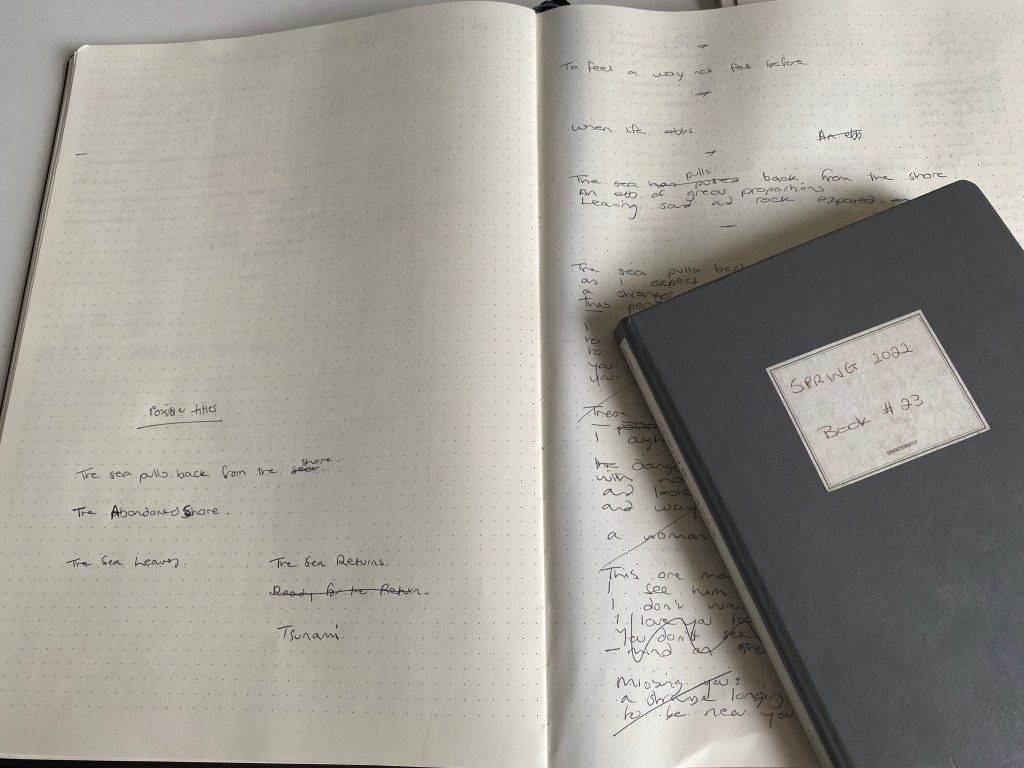 Possible titles
The sea pulls back from the sea shore.
The Abandoned Shore.
The Sea Leaves.
The Sea Returns.
Ready for the Return.
Tsunami
To feel a way not felt before
When life ebbs
An ebb
The sea has pulled pulls back from the shore
An ebb of great proportions
Leaving sand and rock exposed
The sea pulls back
as I expect
a strange
This
I
to
to
you
you
I
danger
with no
and look
and way
a woman
This one
I see him
I don't
I love you
You don't see
mind
Missing you.
a strange longing
to be near you
SPRING 2022
Book # 23
LEUCHTTURM1917